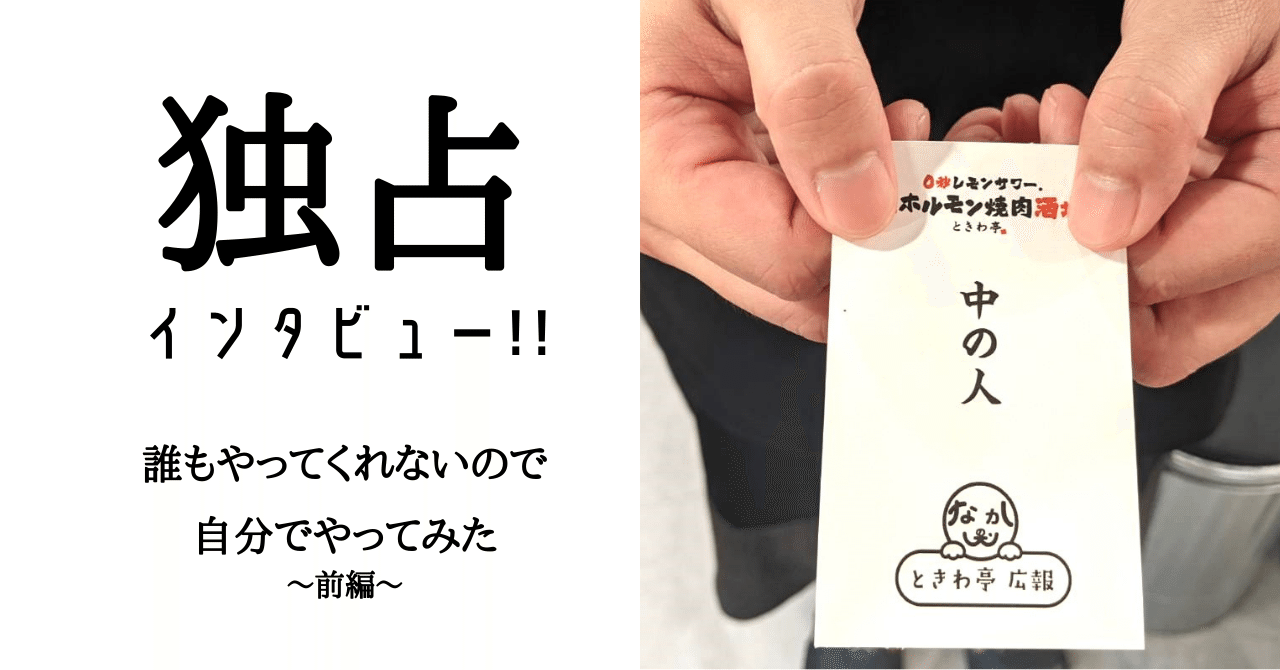 独占
インタビュー!!
誰もやってくれないので
自分でやってみた
～前編～
0秒レモンサワー.
ホルモン焼肉酒
ときわ亭
中の人
なか
ときわ亭 広報